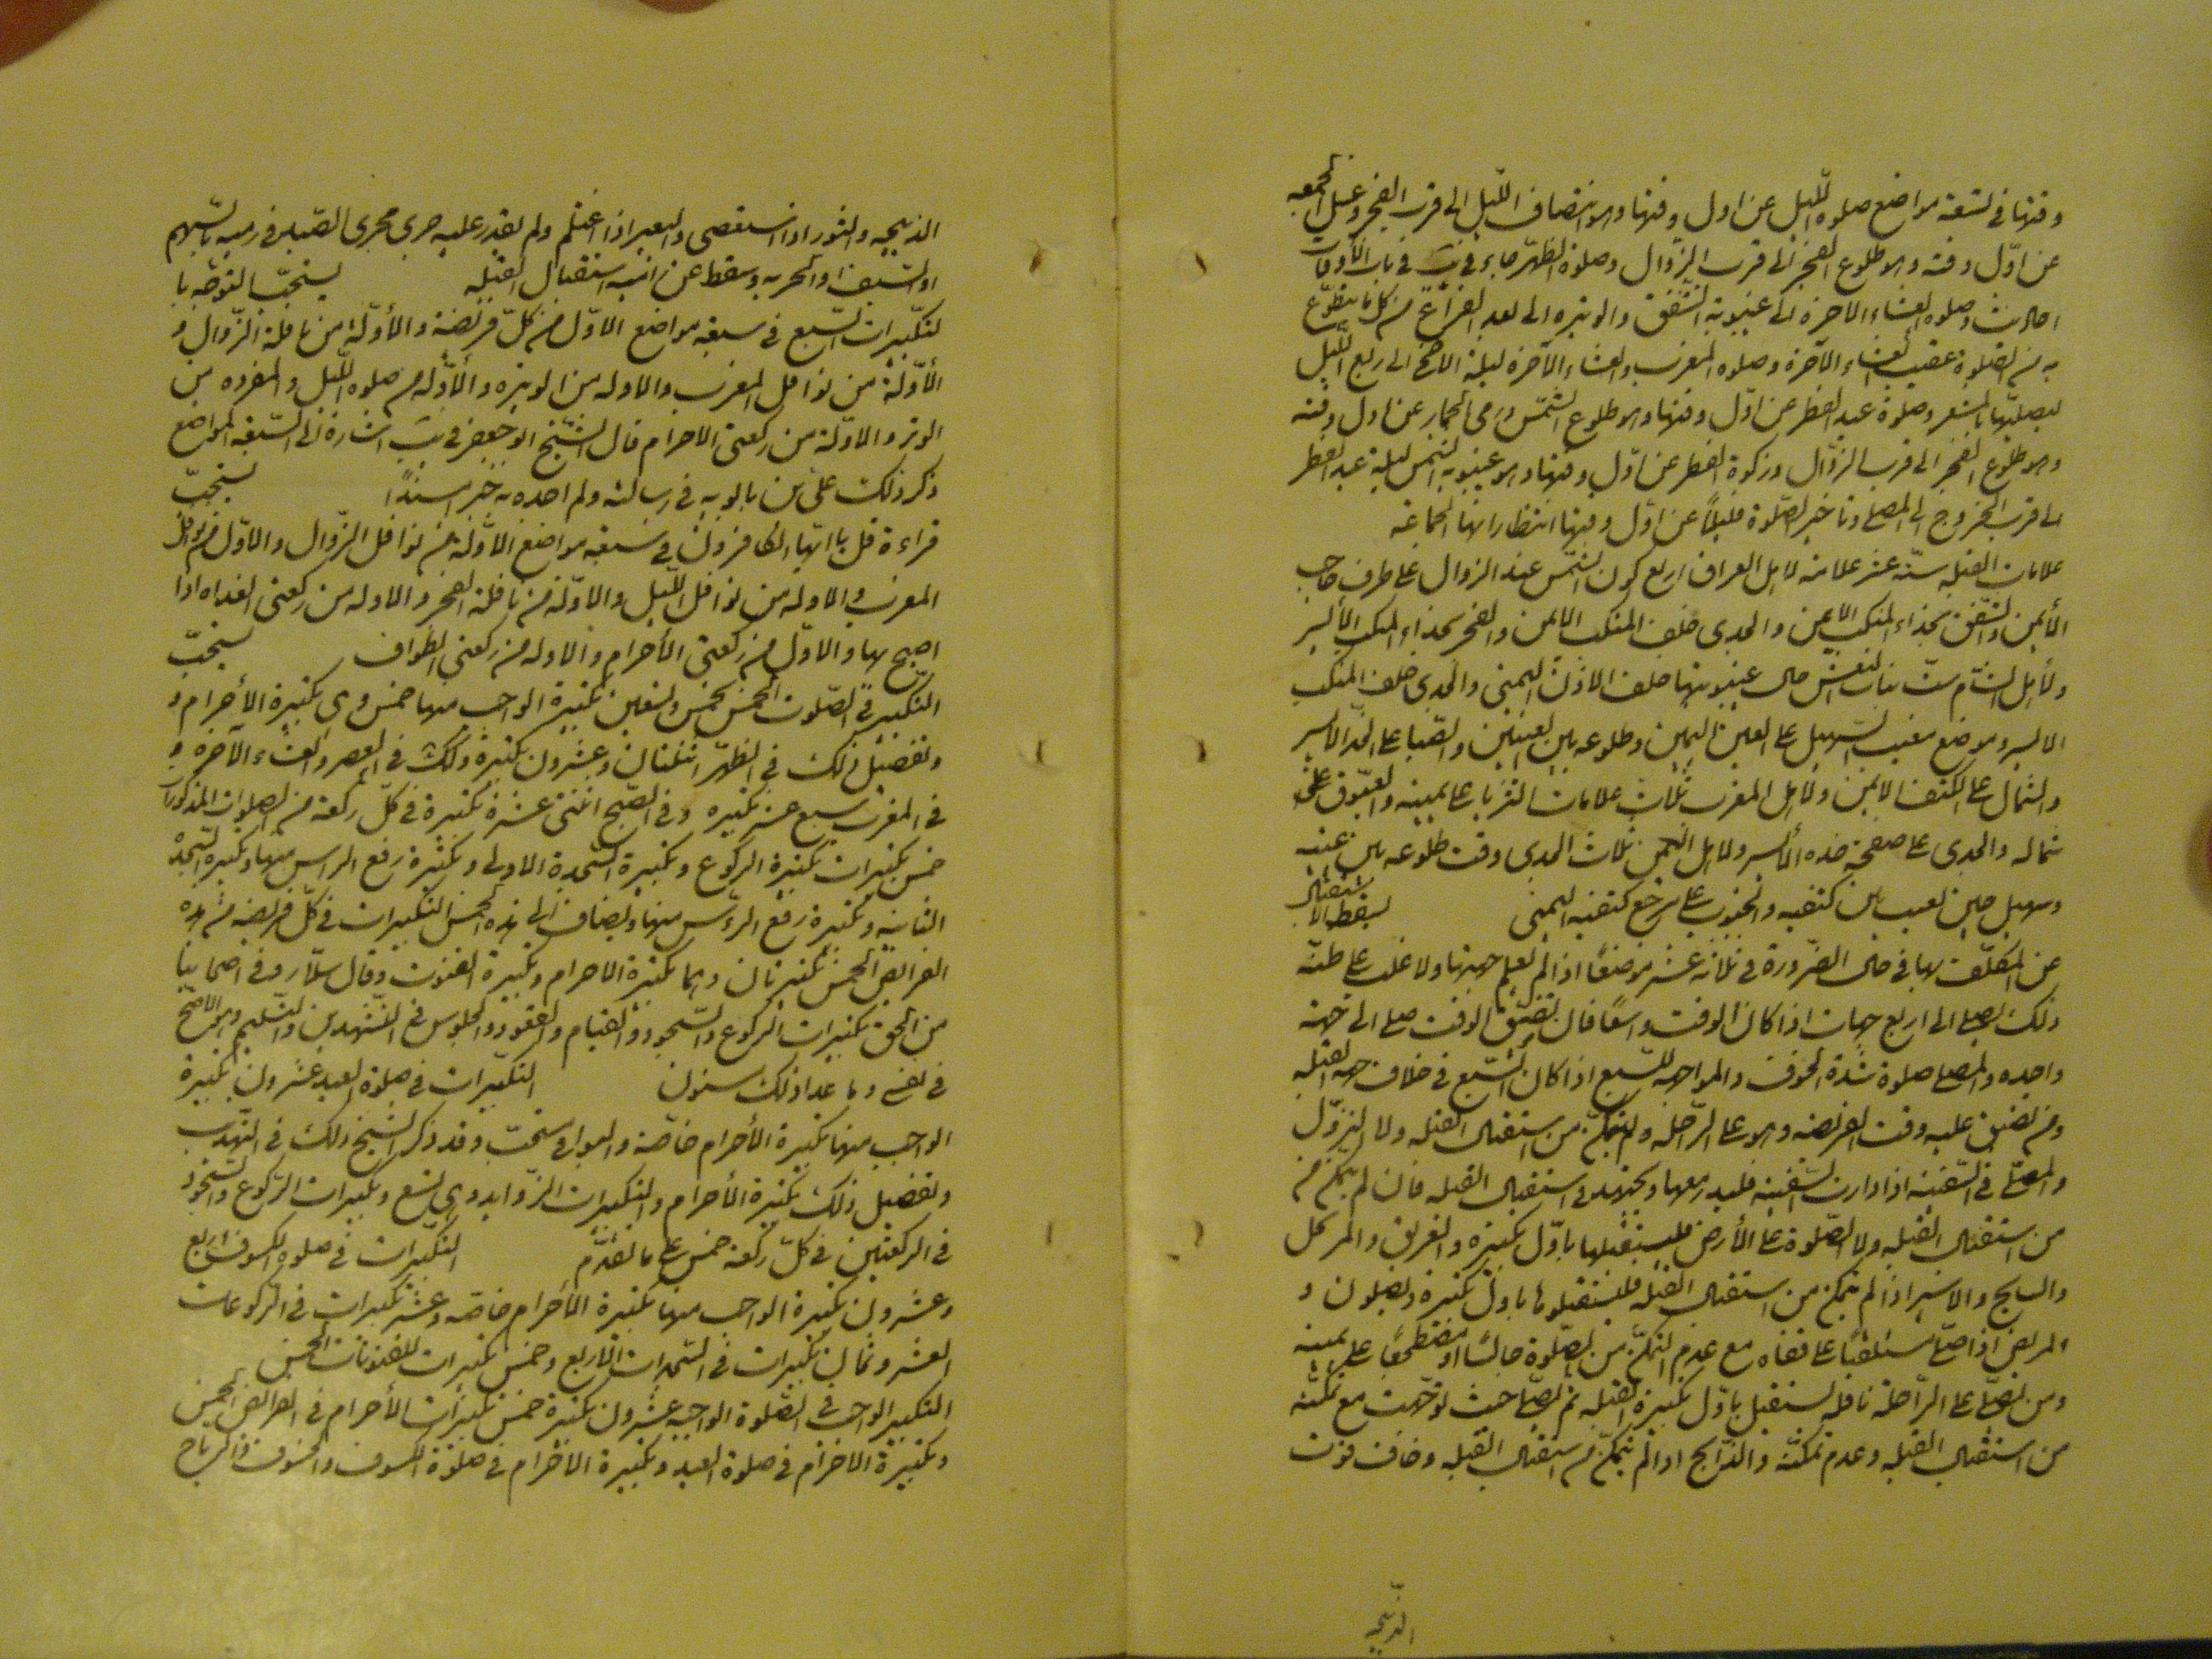 وقتها فى تسعة مواضع صلوة الليل عن اول وقتها وهو انتصاف الليل الى قرب الفجر وغسل الجمعه
عن اوّل وقته وهو طلوع الفجر الى قرب الزّوال وصلوة الظهر جاء فى يب فى باب الأوقات
احاديث وصلوه العشاء الاخرة الى غيبوبة الشّفق والوتيره الى بعد الفراغ من كل ما يتطوّع
به من الصّلوة عقيب العشاء الآخرة وصلوه المغرب والعشاء الآخرة ليلة الاضحى الى ربع اللّيل
ليصليها بالمشعر وصلوة عيد الفطر عن اوّل وقتها وهو طلوع الشّمس ورمى الجمار عن اول وقته
وهو طلوع الفجر الى قرب الزّوال وزكوة الفطر عن اوّل وقتها وهو غيبوبة الشمس ليلة عيد الفطر
الى قرب الخروج الى المصلى وتاخير الصّلوة قليلاً عن اوّل وقتها انتظارا بها الجماعة
علامات القبله ستّة عشر علامة لاهل العراق اربع كون الشّمس عند الزوال على طرف حاجبه
الأيمن والشّفق بحذاء المنكب الايمن والجدى خلف المنكب الايمن والفجر بحذاء المنكب الأيسر
ولأهل الشّام ستّ بنات النعش حال غيبوبتها خلف الاذن اليمنى والجدى خلف المنكب
الايسر وموضع مغيب السّهيل على العين اليمين وطلوعه بين العينين والصّبا على الخدّ الايسر
والشمال على الكتف الايمن ولاهل المغرب ثلاث علامات الثريا على يمينه والعيّوق على
شماله والجدى على صفحة خده الأيسر ولاهل اليمن ثلاث الجدى وقت طلوعه بين عينيه
وسهيل حين لغيب بين كتفيه والجنوب على مرجع كتفيه اليمنى يسقط الاستقبال
عن المكلّف بها فى حال الضّرورة فى ثلاثة عشر موضعًا اذا لم يعلم جهتها ولا غلب على ظنّه
ذلك يصلى الى اربع جهات اذا كان الوقت واسعًا فان تضيّق الوقت صلى الى جهة
واحده والمصلى صلوة شدة الخوف والمواجه للسبع اذا كان السّبع فى خلاف جهة القبله
ومن تضيق عليه وقت الفريضه وهو على الرّاحله ولم يتمكّن من استقبال القبله ولا النزول
والمصلّى فى السّفينه اذا دارت السّفينه فليدر معها ويجتهد فى استقبال القبله فان لم يتمكن من
من استقبال القبله ولا الصّلوة على الأرض فليستقبلها باوّل تكبيره والغريق والمرتحل
والسابح والاسير اذا لم يتمكن من استقبال القبله فليستقبلوها باول تكبيرة ويصلون و
المريض اذا صلّى مستلقيًا على قفاه مع عدم التمكّن من الصّلوة جالسًا او مضطجعًا على يمينه
ومن يصلّى على الرّاحلة نافلة يستقبل باوّل تكبيرة القبله ثم يصلّى حيث توجّهت مع تمكّنه
من استقبال القبله وعدم تمكنّه والذّابح اذا لم يتمكن من استقبال القبله وخاف فوت
الذبيحه
الذبيحه والثور اذا استعصى والبعير اذا اغتلم ولم يقدر عليه جرى مجرى الصّيد فى رميه بالسّهم
او السّيف والحربه وسقط عن استقبال القبله يستحبّ التوجّه با
لتكبيرات السّبع فى سبعه مواضع الاوّل من كلّ فريضة والأوّلة من نافلة الزّوال و
الأوّلة من نوافل المغرب والاوله من الوتيره والأوّله من صلوه اللّيل والمفرده من
الوتر والاوّلة من ركعتى الاحرام قال الشّيخ ابو جعفر فى يب اشارة الى السّبعة المواضع
ذكر ذلك على بن بابويه فى رسالته ولم اجده به خبر مسندًا يستحبّ
قراءة قل يا ايّها الكافرون فى سبعه مواضع الاوّلة من نوافل الزّوال والاوّل من نوافل
المغرب والاوله من نوافل اللّيل والاوّله من نافلة الفجر والاوله من ركعتى الغداه اذا
اصبح بها والاوّل من ركعتى الأحرام والاوله من ركعتى الطّواف يستحبّ
التكبير فى الصّلوت الخمس بخمس وتسعين تكبيرة الواجب منها خمس وهى تكبيرة الأحرام و
وتفصيل ذلك فى الظهر اثنتان وعشرون تكبيرة وكذلك فى العصر والعشاء الآخره و
فى المغرب سبع عشر تكبيره وفى الصّبح اثنتى عشرة تكبيرة فى كلّ ركعة من الصلوات المذكورات
خمس تكبيرات تكبيرة الركوع وتكبيرة السّجدة الاولى وتكبيرة رفع الراس منها وتكبيرة السّجده
الثانيه وتكبيرة رفع الرّاس منها ويضاف الى هذه الخمس التكبيرات فى كلّ فريضه من هذه
الفرائض الخمس تكبيرتان وهما تكبيرة الاحرام وتكبيرة القنوت وقال سلّار وفى اصحابنا
من الحق تكبيرات الركوع والسّجود والقيام والقعود والجلوس فى التشهدين والتسليم وهو الاصحّ
فى نفسى وما عدا ذلك مسنون التكبيرات فى صلوة العيد عشرون تكبيرة
الواجب منها تكبيرة الأحرام خاصّة والبواقى مستحبّ وقد ذكر الشّيخ ذلك فى التّهذيب
وتفصيل ذلك تكبيرة الأحرام والتكبيرات الزّوايد وهى تسع وتكبيرات الرّكوع والسّجود
فى الركعتين فى كلّ ركعة خمس على ما تقدّم التكبيرات فى صلوة الكسوف اربع
وعشرون تكبيرة الواجب منها تكبيرة الأحرام خاصّه وعشر تكبيرات فى الرّكوعات
العشر وثمان تكبيرات فى السّجدات الاربع وخمس تكبيرات للقنوتات الخمس
التكبير الواجب فى الصّلوة الواجبه عشرون تكبيرة خمس تكبيرات الأحرام فى الفرائض الخمس
وتكبيرة الاحرام فى صلوة العيد وتكبيرة الاحرام فى صلوة الكسوف والخسوف والرياح